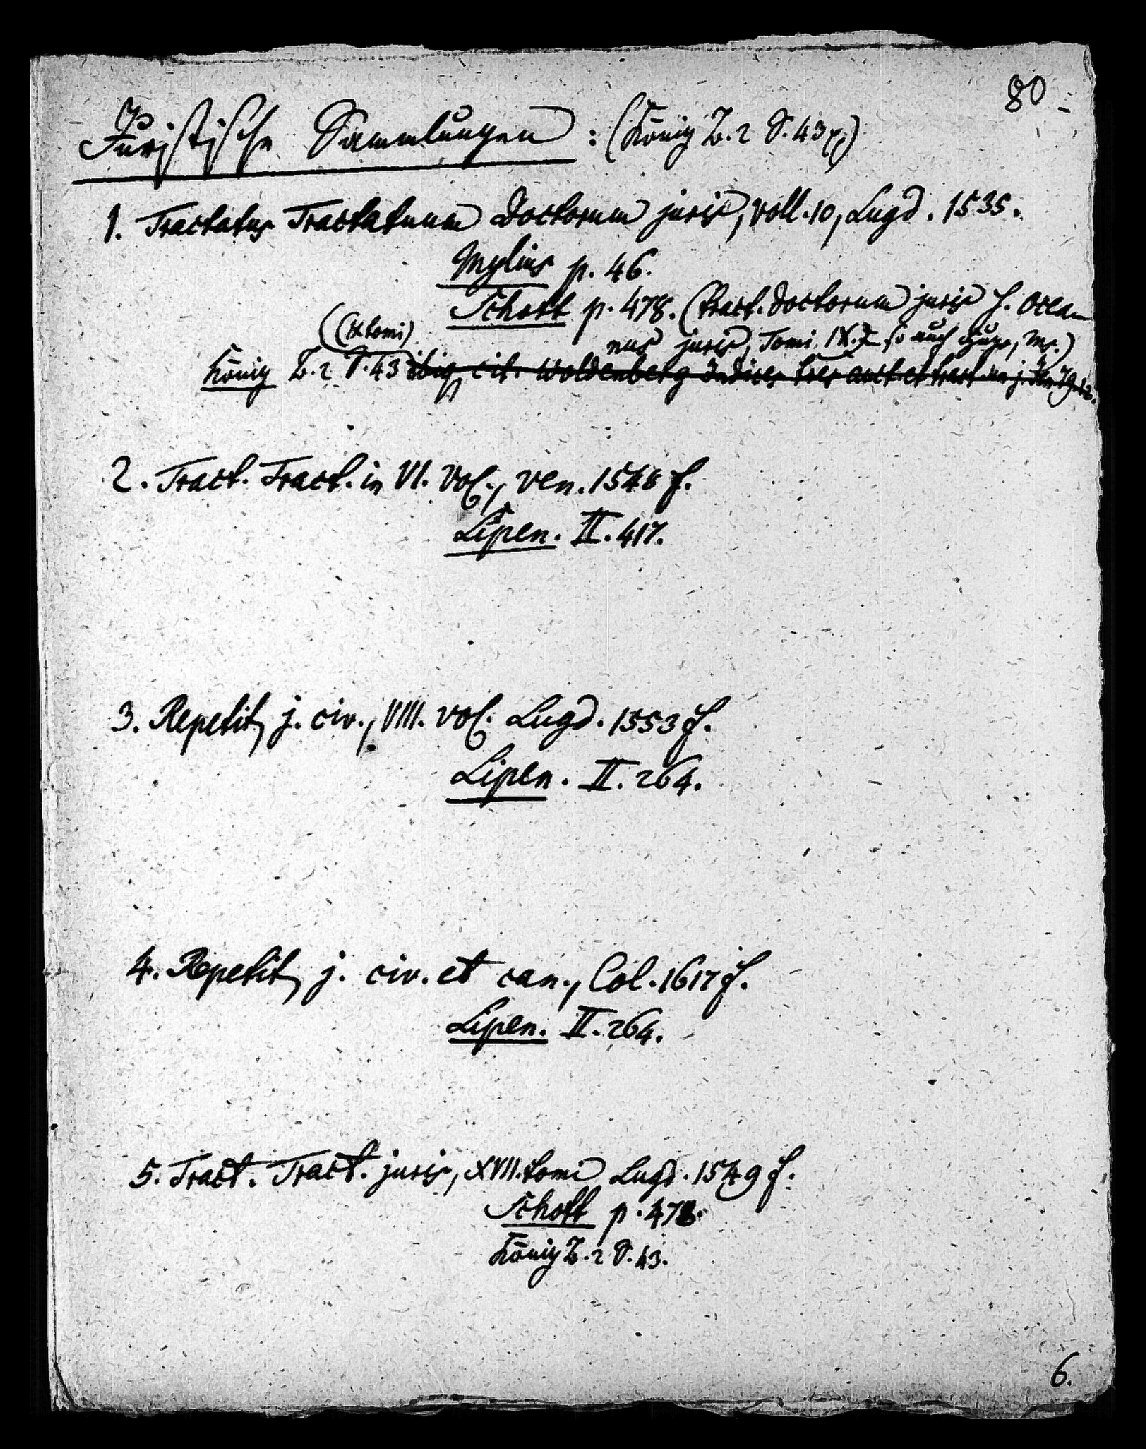 80
Juristische Sammlungen : (König Z. 2 S. 43 )
1. Tractatus Tractatuum Doctorum juris, voll. 10, Lugd. 1535.
Mylius p. 46.
Schott p. 478. (tract. doctorum juris f. Ocea-
nus juris, Tomi IX. so auch , Mr.)
(IX tomi)
König Z. 2 S. 43 cit. Woldenberg Indices tres auct. et tract.
2. Tract. Tract. in VI. Vol., Ven. 1548 f.
Lipen. II. 417.
3. Repetit. j. civ., VIII. vol. Lugd. 1553 f.
Lipen. II. 264.
4. Repetit. j. civ. et can., Col. 1617 f.
Lipen. II. 264.
5. Tract. Tract. juris, XVII. tomi Lugd. 1549 f.
Schott p. 478.
König Z. 2 S. 43.
6.